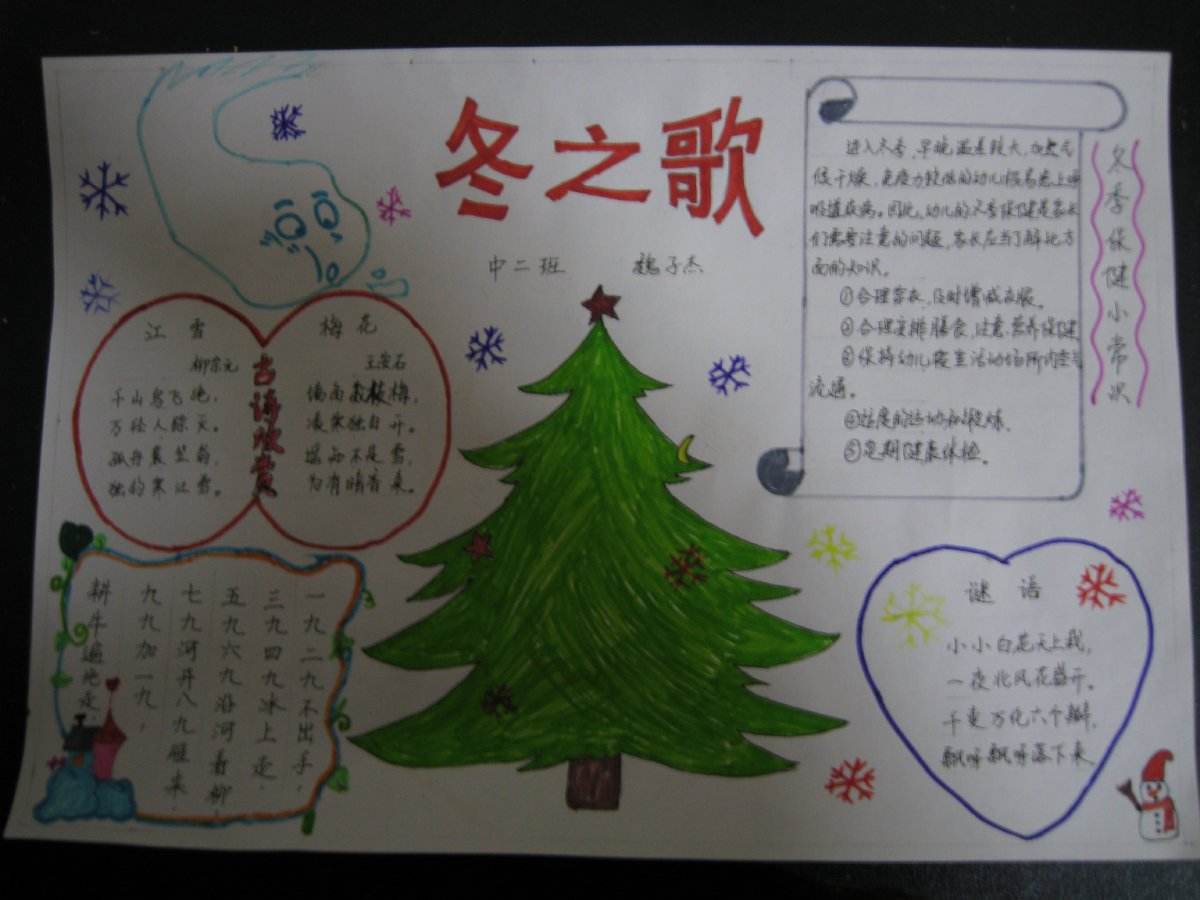 冬之歌
中二班 魏子杰
江雪
柳宗元
千山鸟飞绝，
万径人踪灭。
孤舟蓑笠翁，
独钓寒江雪。
古诗欣赏
梅花
王安石
墙角数枝梅，
凌寒独自开。
遥知不是雪，
为有暗香来。
冬季保健小常识
进入冬季，早晚温差较大，加之气
候干燥，免疫力较低的幼儿极易患上呼
吸道疾病。因此，幼儿的冬季保健是家长
们需要注意的问题，家长应当了解此方
面的知识。
①合理穿衣，及时增减衣服。
②合理安排膳食，注意营养保健
③保持幼儿寝室活动场所内空气
流通。
④适度的运动和锻炼。
⑤定期健康体检。
一九二九不出手，
三九四九冰上走，
五九六九沿河看柳，
七九河开八九雁来，
九九加一九，
耕牛遍地走。
谜语
小小白花天上栽，
一夜北风花盛开。
千变万化六个瓣，
飘呀飘呀落下来